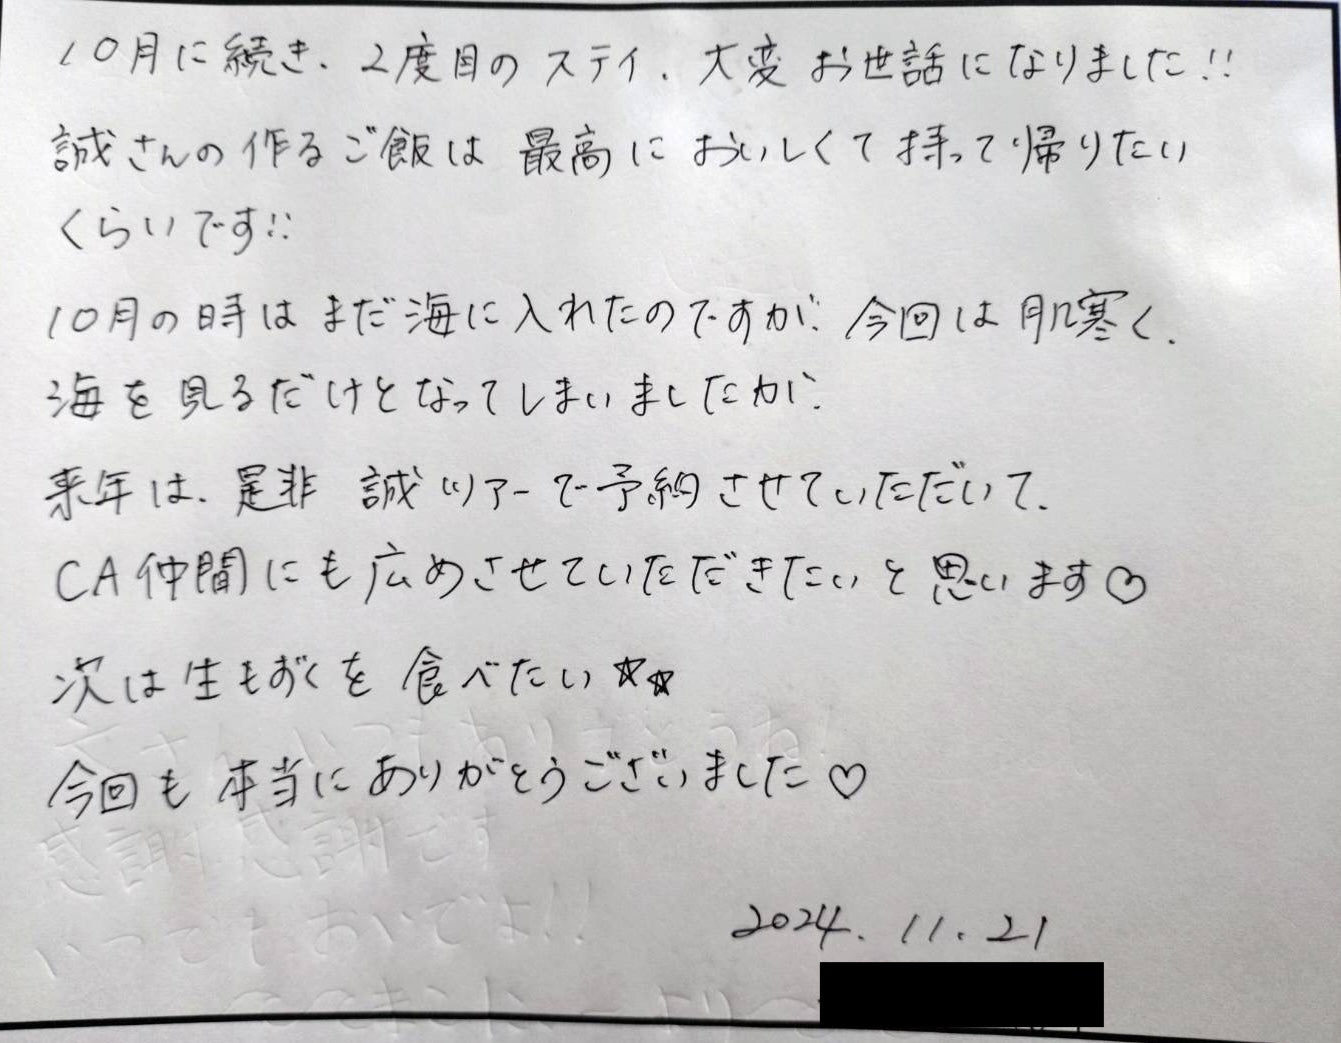 10月に続き、2度目のステイ、大変お世話になりました!!
誠さんの作るご飯は 最高に おいしくて 持って帰りたい
くらいです!!
10月の時は まだ海に入れたのですが、今回は 肌寒く、
海を見るだけとなってしまいましたが、
来年は、是非 誠ツアーで予約させていただいて、
CA仲間にも広めさせていただきたいと思います♡
次は生もずくを 食べたい☆☆
今回も 本当に ありがとうございました♡
感謝感謝です
いつでもおいでよ!!
2024. 11. 21